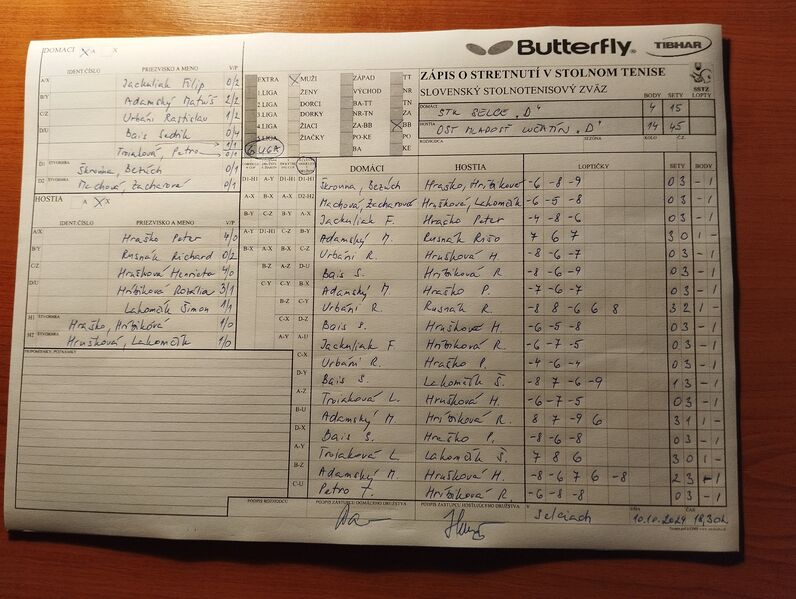 Butterfly
TIBHAR
ZÁPIS O STRETNUTÍ V STOLNOM TENISE
SLOVENSKÝ STOLNOTENISOVÝ ZVÄZ
SSTZ
BODY SETY LOPTY
DOMÁCI STK SELCE "D" 4 15
HOSTIA OŠT MLADOSŤ LUČATÍN "D" 14 45
ROZHODCA SEZÓNA KOLO Č.
EXTRA MUŽI ZÁPAD TT
1.LIGA ŽENY VÝCHOD NR
2.LIGA DORCI BA-TT TN
3.LIGA DORKY NR-TN ZA
4.LIGA ŽIACI ZA-BB BB
5.LIGA ŽIAČKY PO-KE PO
6 LIGA BA KE
DOMÁCI X A X
IDENT ČÍSLO PRIEZVISKO A MENO V/P
A/X Jackuliak Filip 0/2
B/Y Adamský Matúš 2/2
C/Z Urbáni Rastislav 1/2
D/U Bais Sedrik 0/4
Troiaková, Petro 1/1 0/1
D1 ŠTVORHRA Škrovna, Bezúch 0/1
D2 ŠTVORHRA Machová, Zacharová 0/1
HOSTIA A X X
IDENT ČÍSLO PRIEZVISKO A MENO V/P
A/X Hraško Peter 4/0
B/Y Rusnák Richard 0/2
C/Z Hrušková Henrieta 4/0
D/U Hríbiková Rozália 3/1
Lakomčík Šimon 1/1
H1 ŠTVORHRA Hraško, Hríbiková 1/0
H2 ŠTVORHRA Hrušková, Lakomčík 1/0
PRIPOMIENKY, POZNÁMKY
DOMÁCI HOSTIA LOPTIČKY SETY BODY
Škrovna, Bezúch Hraško, Hríbiková -6 -8 -9 0 3 - 1
Machová, Zacharová Hrušková, Lakomčík -6 -5 -8 0 3 - 1
Jackuliak F. Hraško Peter -4 -8 -6 0 3 - 1
Adamský M. Rusnák Rišo 7 6 7 3 0 1 -
Urbáni R. Hrušková H. -8 -6 -7 0 3 - 1
Bais S. Hríbiková R. -8 -6 -9 0 3 - 1
Adamský M. Hraško P. -7 -6 -7 0 3 - 1
Urbáni R. Rusnák R. -8 8 -6 6 8 3 2 1 -
Bais S. Hrušková H -6 -5 -8 0 3 - 1
Jackuliak F. Hríbiková R. -6 -7 -5 0 3 - 1
Urbáni R. Hraško P. -4 -6 -4 0 3 - 1
Bais S. Lakomčík Š. -8 7 -6 -9 1 3 - 1
Troiaková L. Hrušková H. -6 -7 -5 0 3 - 1
Adamský M. Hríbiková R. 8 7 -9 6 3 1 1 -
Bais S. Hraško P. -8 -6 -8 0 3 - 1
Troiaková L. Lakomčík Š. 7 8 6 3 0 1 -
Adamský M. Hrušková H. -8 -6 7 6 -8 2 3 - 1
Petro T. Hríbiková R. -6 -8 -8 0 3 - 1
PODPIS ROZHODCU PODPIS ZÁSTUPCU DOMÁCEHO DRUŽSTVA PODPIS ZÁSTUPCU HOSŤUJÚCEHO DRUŽSTVA V Selciach DŇA 10.10.2024 ČAS 18,30h